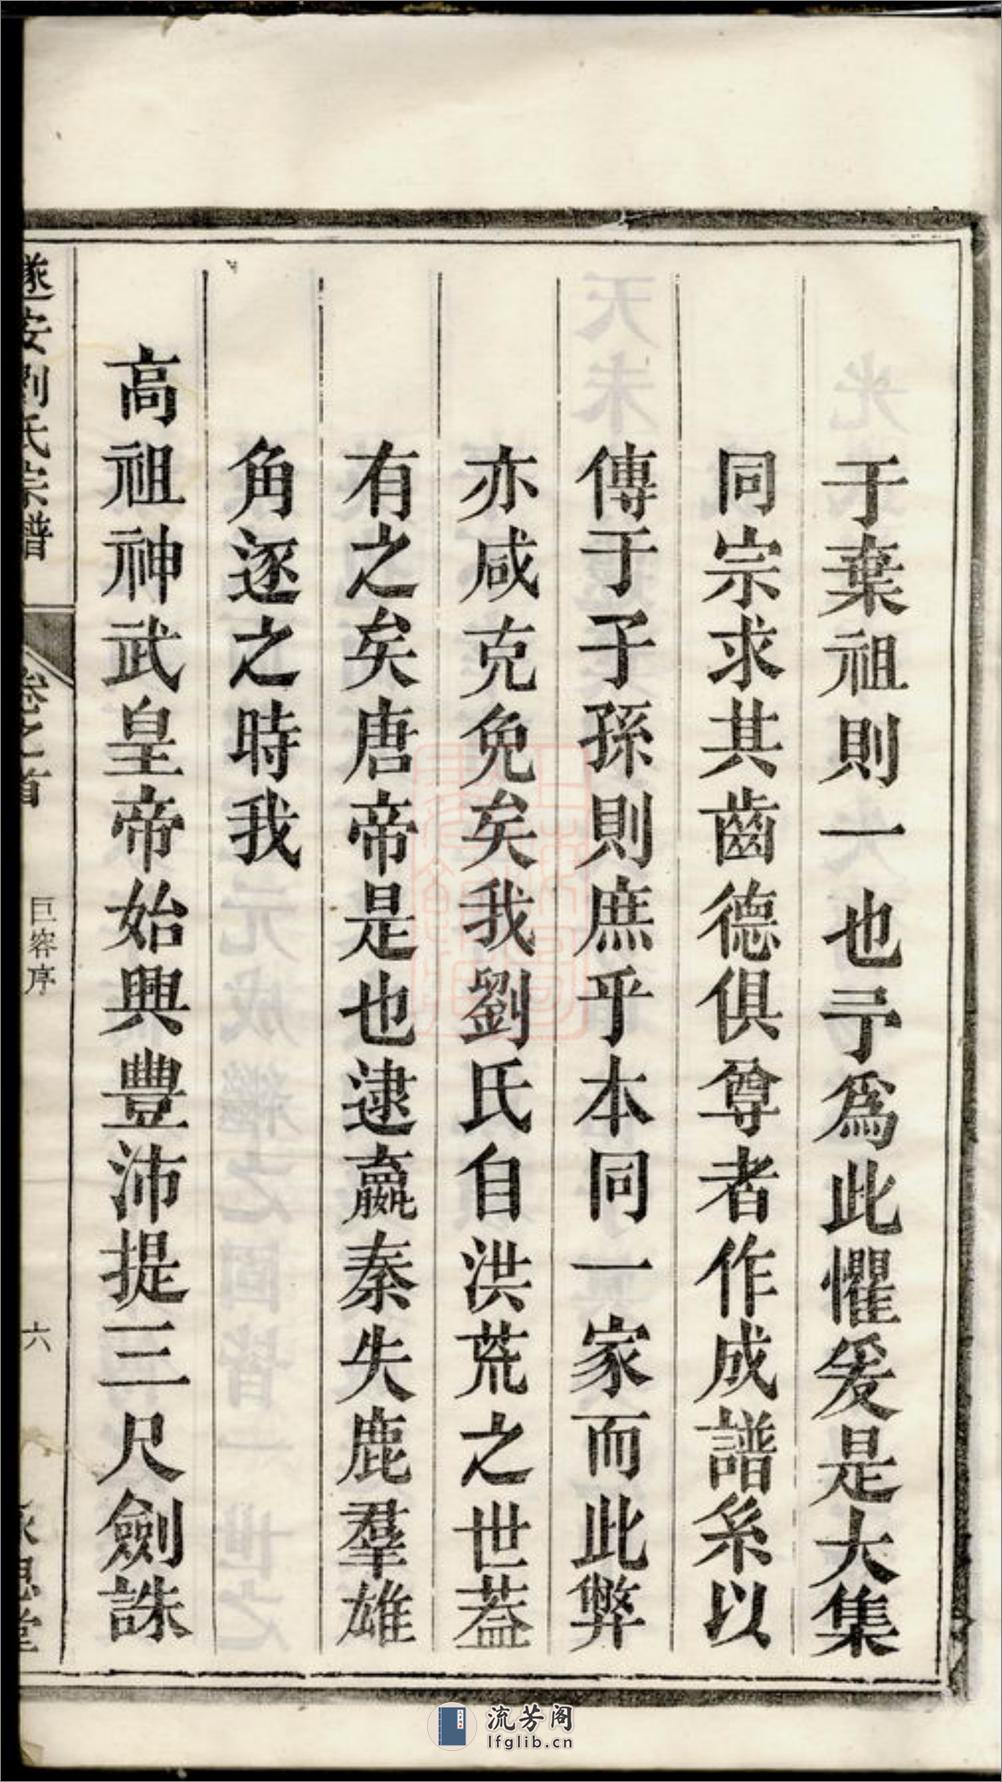 于棄祖則一也予爲此懼爰是大集
同宗求其齒德俱尊者作成譜系以
傳于子孫則庶乎本同一家而此弊
亦咸克免矣我劉氏自洪荒之世葢
有之矣唐帝是也逮嬴秦失鹿羣雄
角逐之時我
高祖神武皇帝始興豐沛提三尺劍誅
遂安劉氏宗譜
卷之首
巨容序
六
思堂
流芳阁
lfglib.cn